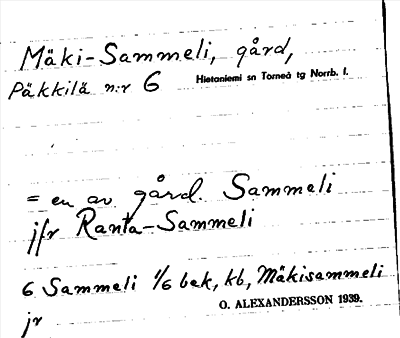 Mäki-Sammeli, gård,
Päkkilä n:r 6 Hietaniemi sn Torneå tg Norrb. l.
= en av gård. Sammeli
jfr Ranta-Sammeli
6 Sammeli 1/6 bek, kb, Mäkisammeli
jr
O. ALEXANDERSSON 1939.